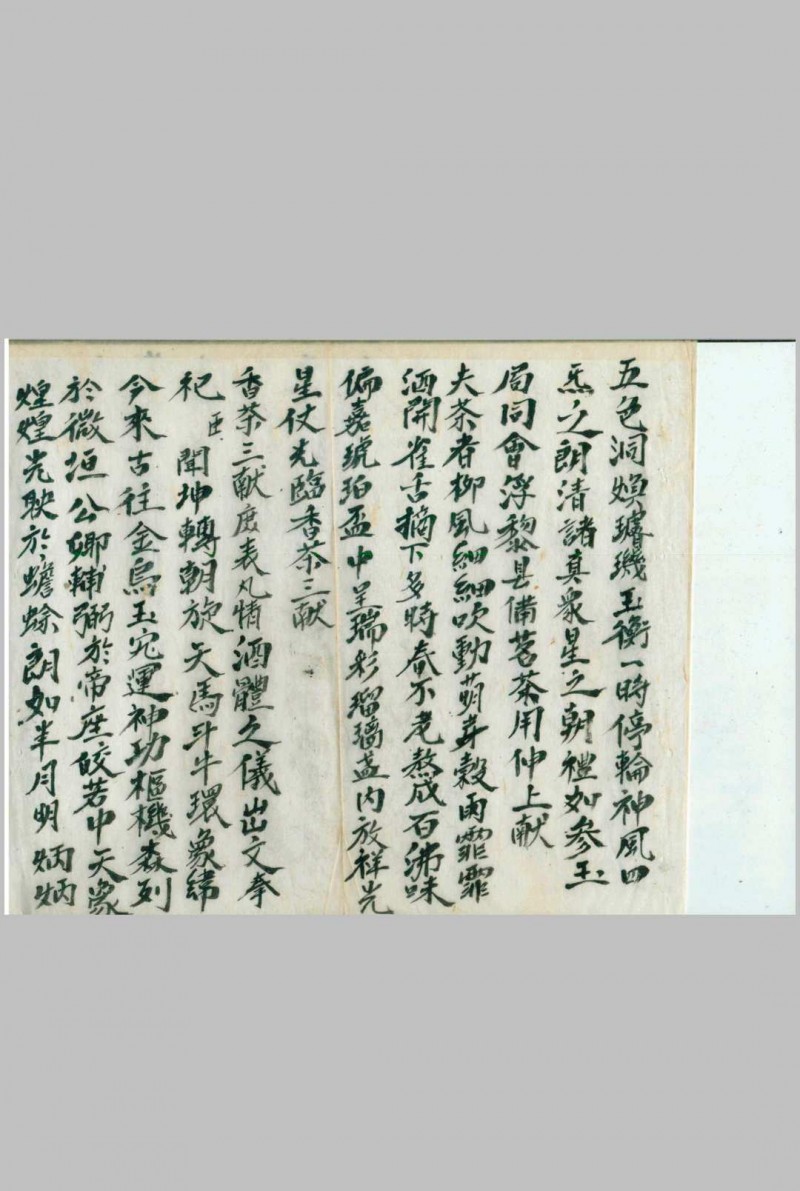 五色洞焕璿璣玉衡一時停輪神風四
炁之朗清諸真衆星之朝禮如參玉
局同會浮黎是備茗茶用伸上献
夫茶者柳風細細吹動萌芽穀雨霏霏
洒開雀舌摘下多時春不老熬成百沸味
偏嘉琥珀盃中呈瑞彩瑠璃盞内放祥光
星仗光臨香茶三献
香茶三献庻表凡情酒體之儀出文奉
祀 臣 聞坤轉朝旋天馬斗牛環象緯
今來古往金烏玉兔運神功樞機森列
於微垣公卿輔弼於帝座皎若中天象
煌煌光映於蟾蜍朗如半月明炳炳